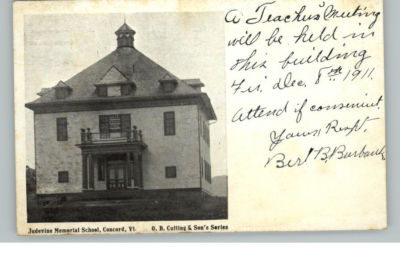 A Teachers Meeting
will be held in
this building
Fri. Dec. 8th 1911.
Attend if convenient.
Yours Respt.
Bert B. Burbank
Judevine Memorial School, Concord, Vt. O. B. Cutting & Son's Series